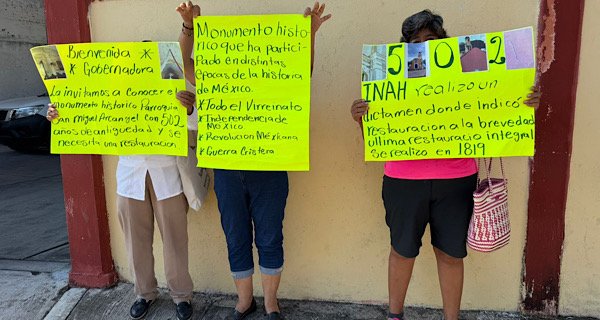 Bienvenida *
* Gobernadora
La invitamos a Conocer el
monumento historico Parroquia
san miguel Arcangel con 502
años de antiguedad y se
necesita una restauracion.
Monumento histo
rico que ha partici-
pado en distintas
épocas de la historia
de México.
*Todo el Virreinato
*Independencia de
México.
*Revolución Méxicana
*Guerra Cristera
502
INAH realizo un
dictamen donde Indicó
restauracion a la brevedad
ultima restauracio integral
se realizo en 1819